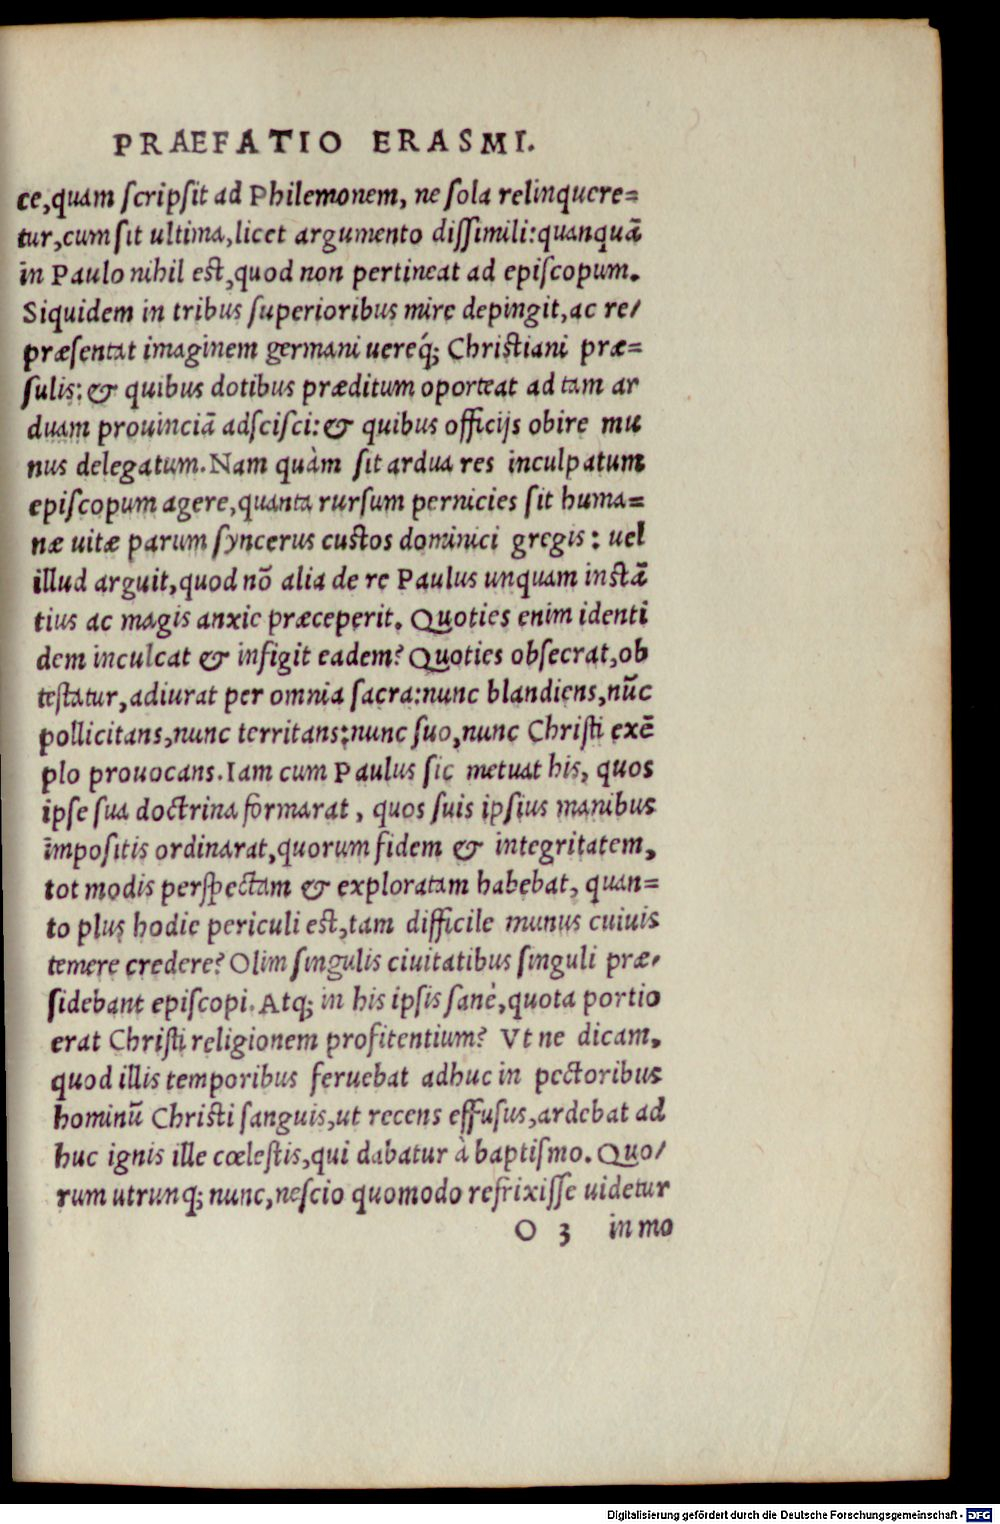 PRAEFATIO ERASMI.
ce,quam ſcripſit ad Philemonem, ne ſola relinquere=
tur,cum ſit ultima,licet argumento diſſimili:quanquā
in Paulo nihil eſt,quod non pertineat ad epiſcopum.
Siquidem in tribus ſuperioribus mire depingit,ac re/
præſentat imaginem germani uereq́; Chriſtiani præ=
ſulis: & quibus dotibus præditum oporteat ad tam ar
duam prouinciā adſciſci: & quibus officijs obire mu
nus delegatum. Nam quàm ſit ardua res inculpatum
epiſcopum agere,quanta rurſum pernicies ſit huma=
næ uitæ parum ſyncerus cuſtos dominici gregis: uel
illud arguit,quod nō alia de re Paulus unquam inſtā
tius ac magis anxie præceperit. Quoties enim identi
dem inculcat & infigit eadem? Quoties obſecrat,ob
teſtatur,adiurat per omnia ſacra:nunc blandiens,nūc
pollicitans,nunc territans:nunc ſuo,nunc Chriſti exē
plo prouocans. Iam cum Paulus ſic metuat his, quos
ipſe ſua doctrina formarat, quos ſuis ipſius manibus
impoſitis ordinarat,quorum fidem & integritatem,
tot modis perſpectam & exploratam habebat, quan=
to plus hodie periculi eſt,tam difficile munus cuiuis
temere credere? Olim ſingulis ciuitatibus ſinguli præ/
ſidebant epiſcopi. Atq; in his ipſis ſanè,quota portio
erat Chriſti religionem profitentium? Vt ne dicam,
quod illis temporibus feruebat adhuc in pectoribus
hominū Chriſti ſanguis,ut recens effuſus,ardebat ad
huc ignis ille cœleſtis,qui dabatur à baptiſmo. Quo/
rum utrunq; nunc,neſcio quomodo refrixiſſe uidetur
O 3 in mo
Digitalisierung gefördert durch die Deutsche Forschungsgemeinschaft - DFG